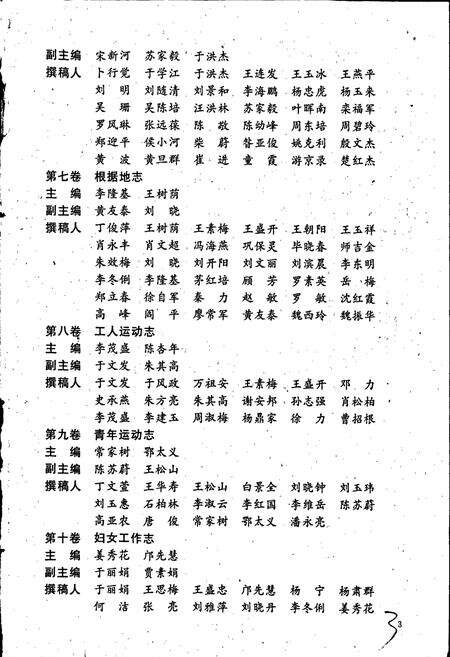 副主编 宋新河 苏家毅 于洪杰
撰稿人 卜行觉 于学江 于洪杰 王连发 王玉冰 王燕平
刘明 刘随清 刘景和 李海鹏 杨忠虎 杨玉来
吴珊 吴陈培 汪洪林 苏家毅 叶晖南 栾福军
罗风琳 张远葆 陈敢 陈幼峰 周东培 周碧玲
郑迎平 侯小河 柴蔚 昝亚俊 姚克利 殷文杰
黄波 黄旦群 崔进 童霞 游京录 楚红杰
第七卷 根据地志
主编 李隆基 王树荫
副主编 黄友泰 刘晓
撰稿人 丁俊萍 王树荫 王素梅 王盛开 王朝阳 王玉祥
肖永丰 肖文超 冯海燕 巩保灵 毕晓春 师吉金
朱效梅 刘晓 刘开阳 刘文丽 刘滨晨 李东明
李冬俐 李隆基 苏红培 顾芳 罗素英 岳梅
郑立春 徐自军 秦力 赵敏 罗敏 沈红霞
高峰 阎平 廖常军 黄友泰 魏西玲 魏振华
第八卷 工人运动志
主编 李茂盛 陈杏年
副主编 于文发 朱其高
撰稿人 于文发 于风政 万祖安 王素梅 王盛开 邓力
史承燕 朱方亮 朱其高 谢安邦 孙志强 肖松柏
李茂盛 李建玉 周淑梅 杨鼎家 徐力 曹招根
第九卷 青年运动志
主编 常家树 鄂太义
副主编 陈苏蔚 王松山
撰稿人 丁文萱 王华寿 王松山 白景全 刘晓钟 刘玉玮
刘玉惠 石柏林 李淑云 李红国 李维岳 陈苏蔚
高亚农 唐俊 常家树 鄂太义 潘永亮
第十卷 妇女工作志
主编 姜秀花 邝先慧
副主编 于丽娟 贾素娟
撰稿人 于丽娟 王思梅 王盛忠 邝先慧 杨宁 杨肃群
何洁 张亮 刘雅萍 刘晓丹 李冬俐 姜秀花
3